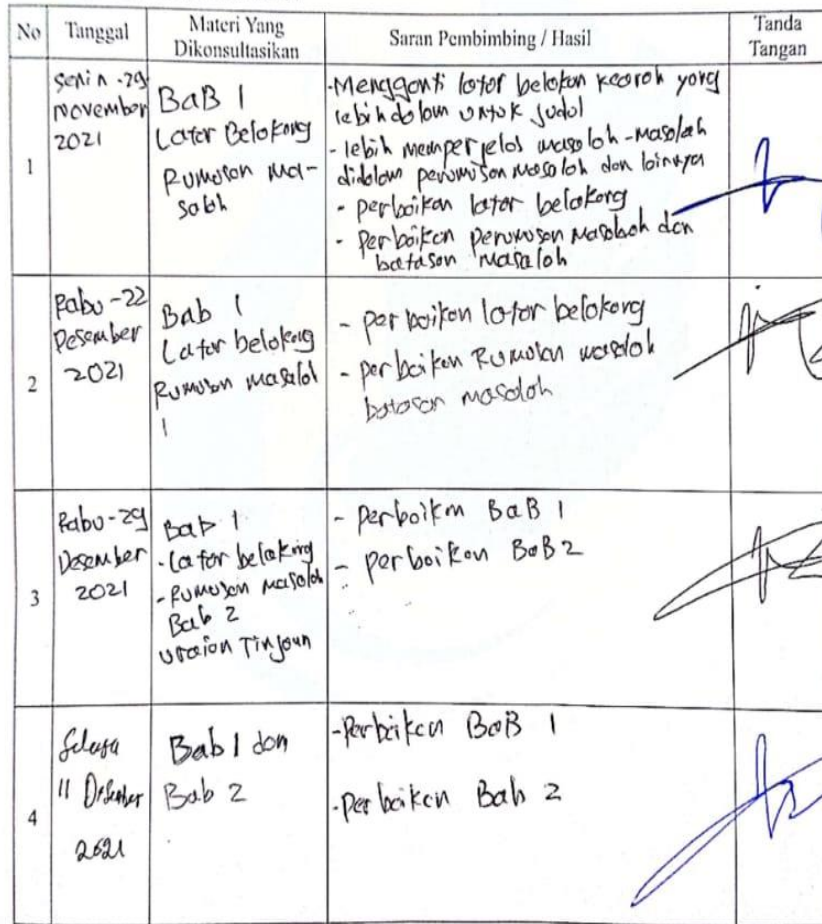 No
Tanggal
Materi Yang
Dikonsultasikan
Saran Pembimbing / Hasil
Tanda
Tangan
1
Senin - 29
November
2021
BaB 1
Latar Belakang
Rumusan ma-
salah
- Mengganti latar belakan kearah yang
lebih dalam untuk judul
- lebih memperjelas masalah - masalah
didalam perumusan masalah dan lainnya
- perbaikan latar belakang
- perbaikan perumusan masalah dan
batasan masalah
2
Rabu - 22
Desember
2021
Bab 1
Latar belakang
Rumusan masalah
1
- perbaikan latar belakang
- perbaikan Rumusan masalah
batasan masalah
3
Rabu - 29
Desember
2021
Bab 1
- latar belakang
- Rumusan masalah
Bab 2
uraian Tinjaun
- perbaikan BaB 1
- perbaikan BaB 2
4
Selasa
11 Desember
2021
Bab 1 dan
Bab 2
- Perbaikan BaB 1
- perbaikan Bab 2